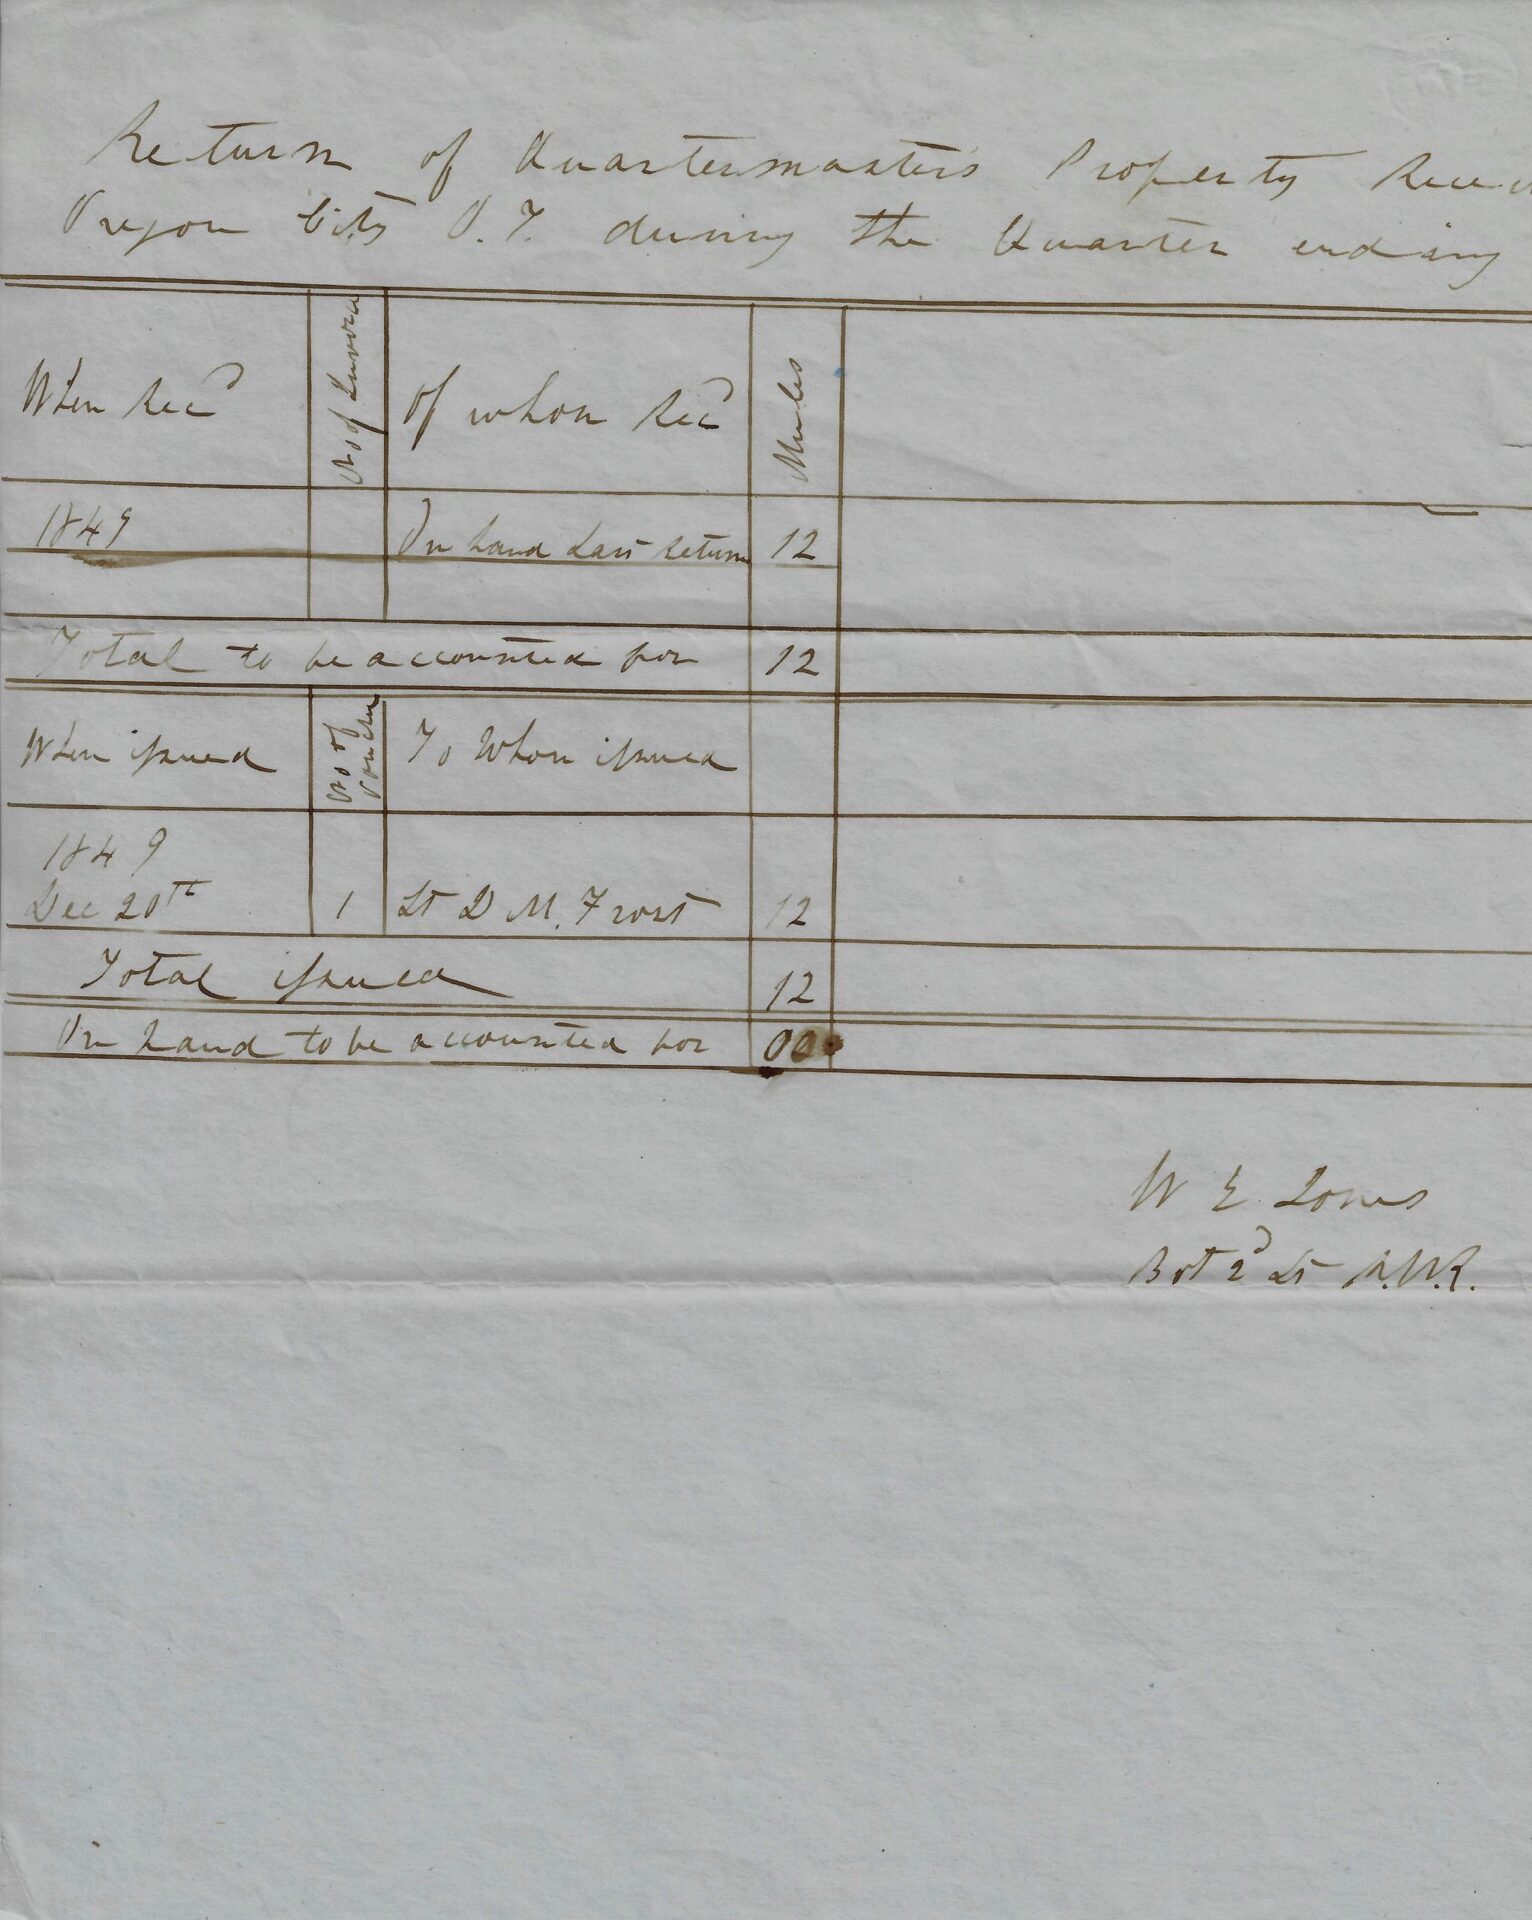 Return of Quartermasters Property Recei
Oregon City O.T. during the Quarter ending
When Recd
No of Invoice
Of whom Recd
Mules
1849
On hand Last Return 12
Total to be accounted for 12
When issued
No of
Voucher
To Whom issued
1849
Dec 20th 1 Lt D M. Frost 12
Total issued 12
On hand to be accounted for 00
W E Jones
Bvt 2d Lt R.M.R.